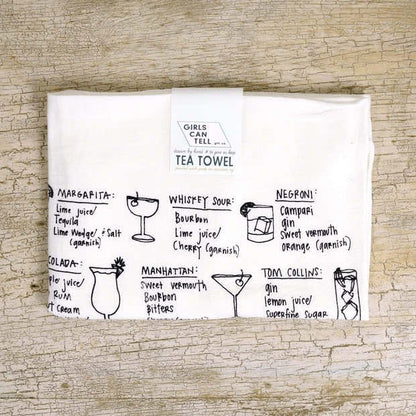 GIRLS
CAN TELL
TEA TOWEL
MARGARITA:
Lime juice/
Tequila
Lime Wedge/ & Salt
(garnish)
WHISKEY SOUR:
Bourbon
Lime juice/
Cherry (garnish)
NEGRONI:
Campari
gin
Sweet vermouth
orange (garnish)
COLADA:
juice/
RUM
Cream
MANHATTAN:
Sweet vermouth
Bourbon
Bitters
TOM COLLINS:
gin
lemon juice/
Superfine Sugar